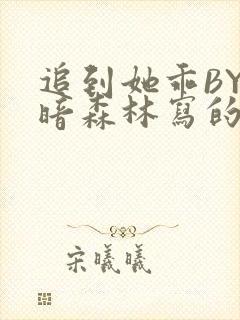 追到她乖BY
暗森林寫的
宋曦曦